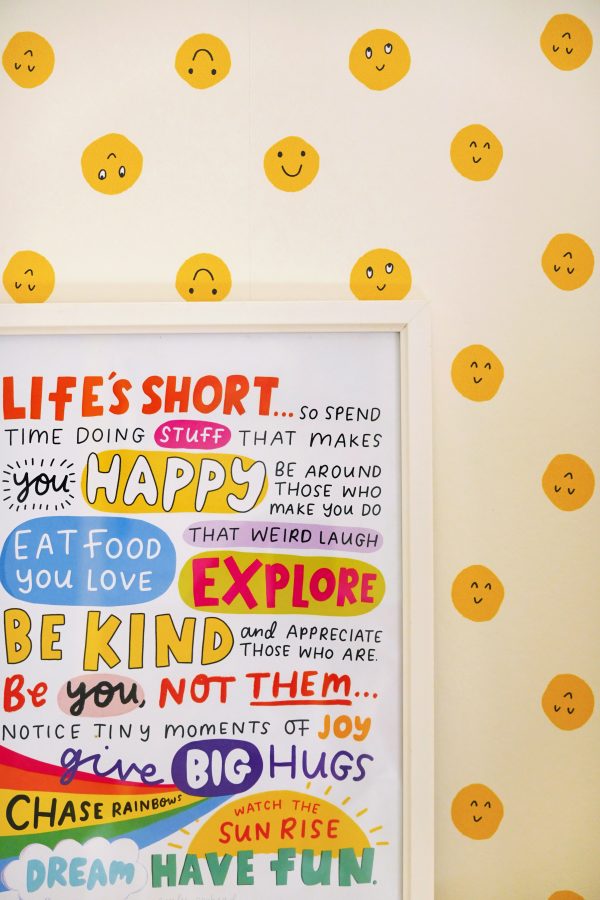 LIFE'S SHORT... SO SPEND
TIME DOING STUFF THAT MAKES
you HAPPY BE AROUND
THOSE WHO
MAKE YOU DO
THAT WEIRD LAUGH
EAT FOOD
YOU LOVE
EXPLORE
BE KIND and APPRECIATE
THOSE WHO ARE.
Be you, NOT THEM...
NOTICE TINY MOMENTS OF JOY
give BIG HUGS
CHASE RAINBOWS
WATCH THE
SUN RISE
DREAM HAVE FUN.